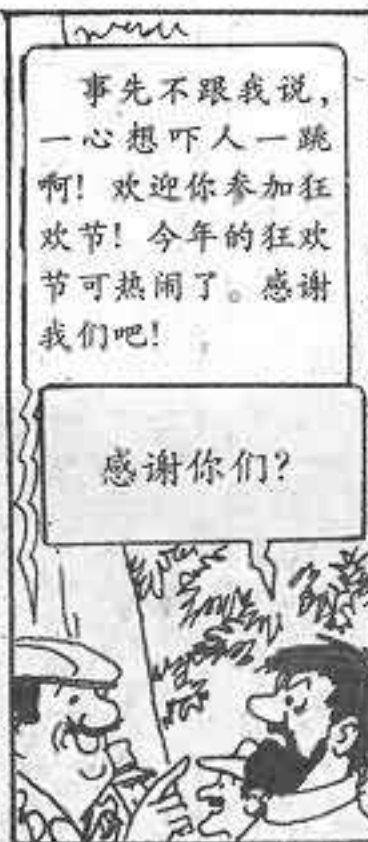 事先不跟我说，
一心想吓人一跳
啊！欢迎你参加狂
欢节！今年的狂欢
节可热闹了。感谢
我们吧！
感谢你们？